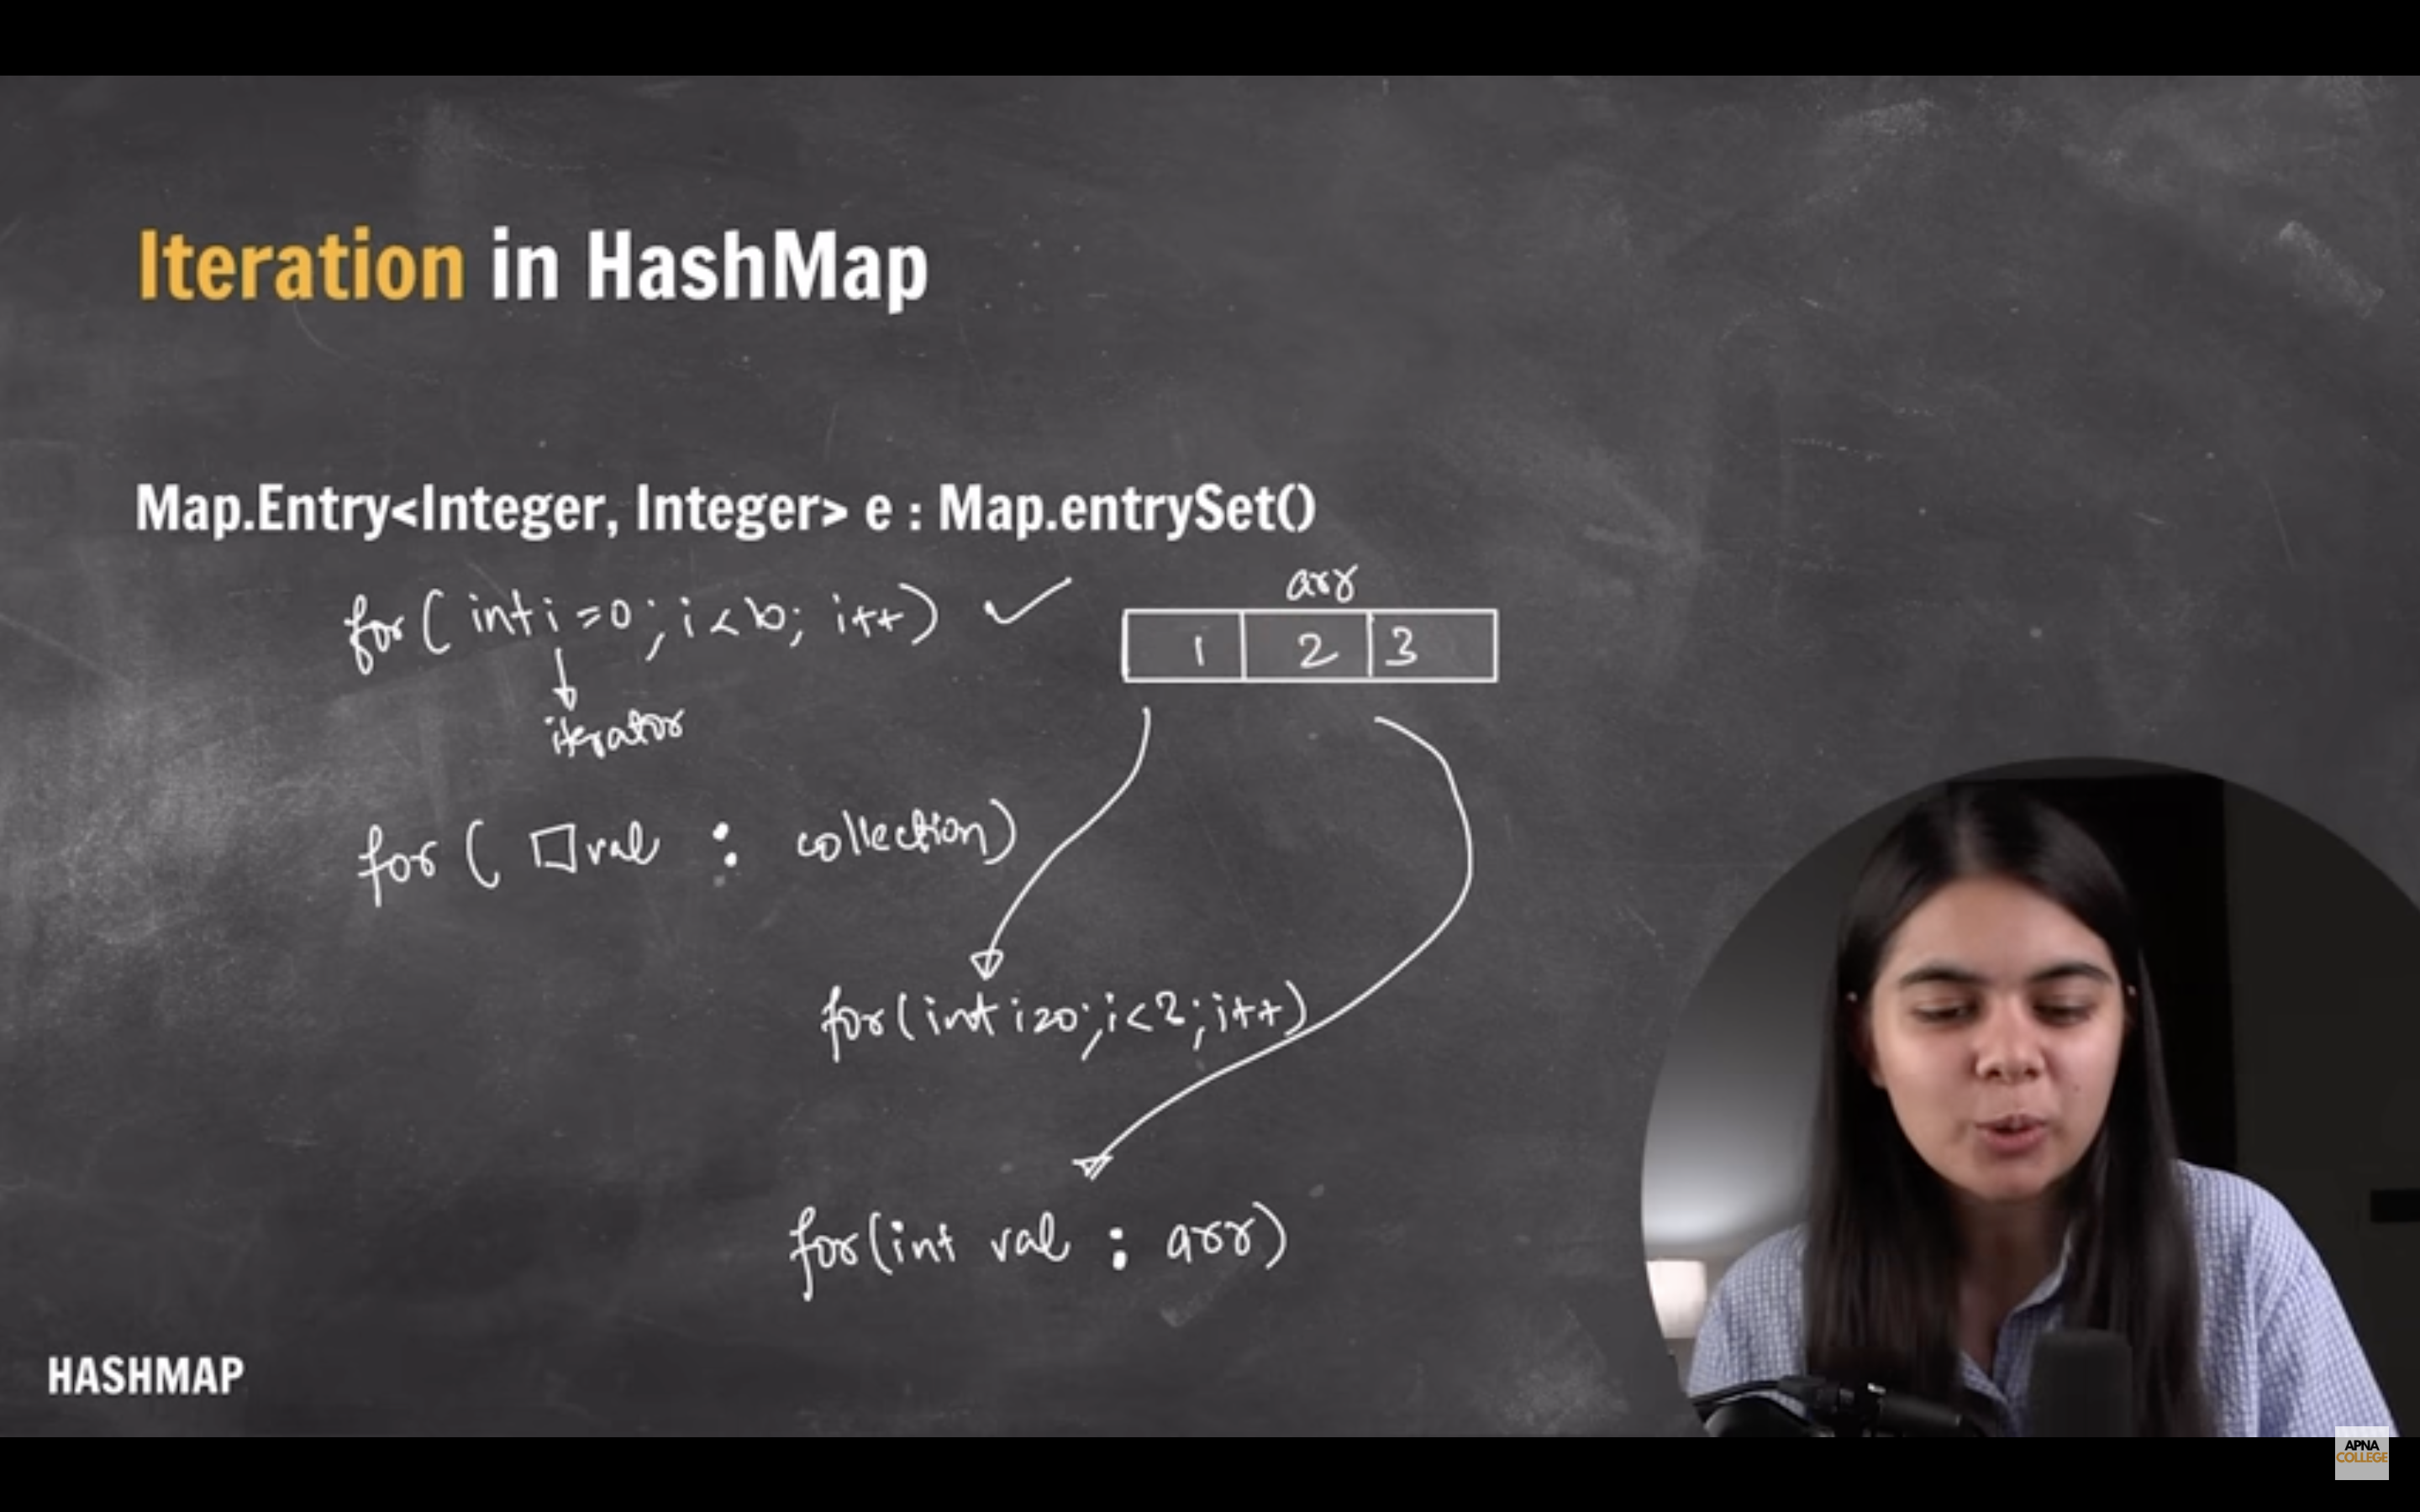 Iteration in HashMap
Map.Entry<Integer, Integer> e : Map.entrySet()
for( int i=0; i<10; i++) ✓
iterator
arr
1 2 3
for( □ val : collection)
for(int i=0; i<2; i++)
for(int val : arr)
HASHMAP
APNA
COLLEGE